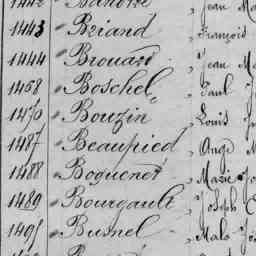 1443 Briand, François
1444 Brouard, Jean M
1458 Boschel, Paul
1470 Bouzin, Louis
1487 Beaupied, Ange
1488 Boguenet, Marie Jo
1489 Bourgault, Joseph
1495 Busnel, Malo Jos